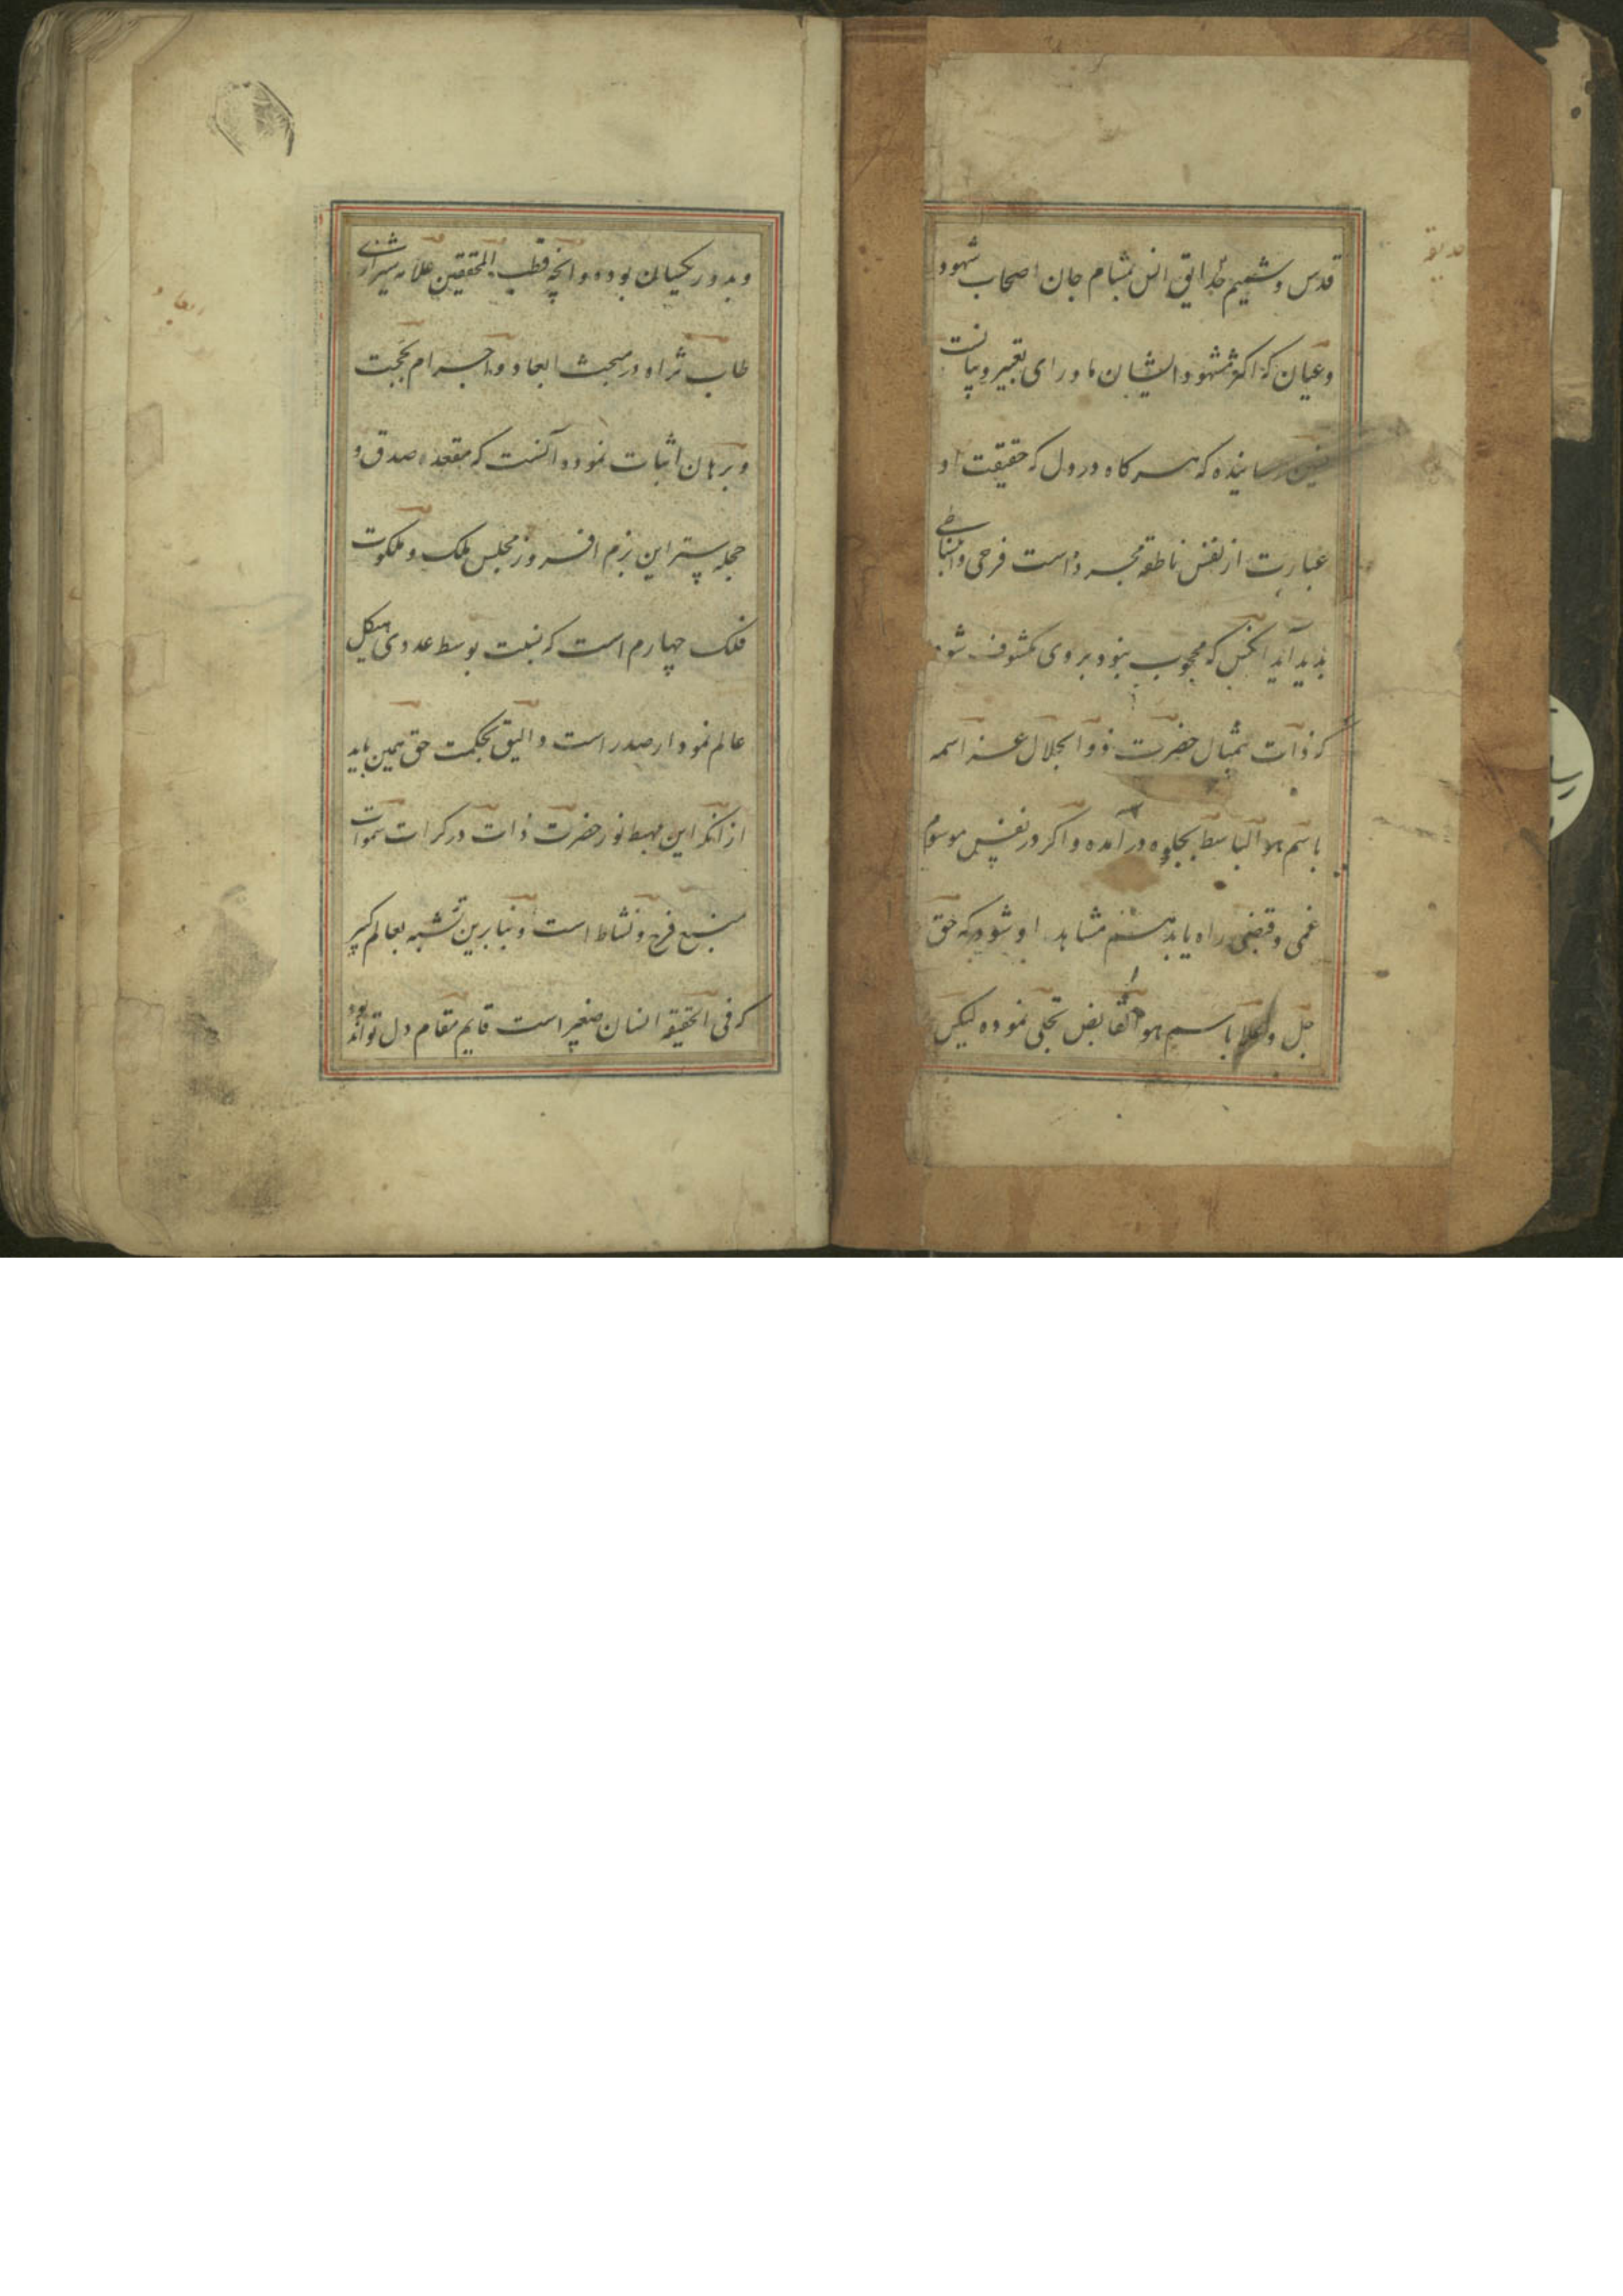 قدس و شمیم حدایق انس بمشام جان اصحاب شهود
و عیان که اکثر مشهود ایشان ماورای تعبیر و بیانست
رسانیده که هر کاه در دل که حقیقت او
عبارت از نفس ناطقه مجرد است فرحی و انبساطی
بدید آید انکس که محجوب نبود بر وی مکشوف شود
که ذات بیمثال حضرت ذو الجلال عز اسمه
باسم هو الباسط بجلوه در آمده و اکر در نفس موسوم
غمی و قبضی راه یابد هم مشاهد او شود که حق
جل و علا باسم هو القابض تجلی نموده لیکن
حدیقه
و بدور یکسان بوده و انچه قطب المحققین علامه شیرازی
طاب ثراه در مبحث ابعاد و اجرام بحجت
و برهان اثبات نموده آنست که مقعد صدق و
حجله ستر این بزم افروز مجلس ملک و ملکوت
فلک چهارم است که نسبت بوسط عددی هیکل
عالم نمودار صدر است و الیق بحکمت حق همین باید
از آنکه این مهبط نور حضرت ذات در کرات سموات
منبع فرح و نشاط است و بنابرین تشبه بعالم کبیر
که فی الحقیقة انسان صغیر است قایم مقام دل تواند بود
ابعاد